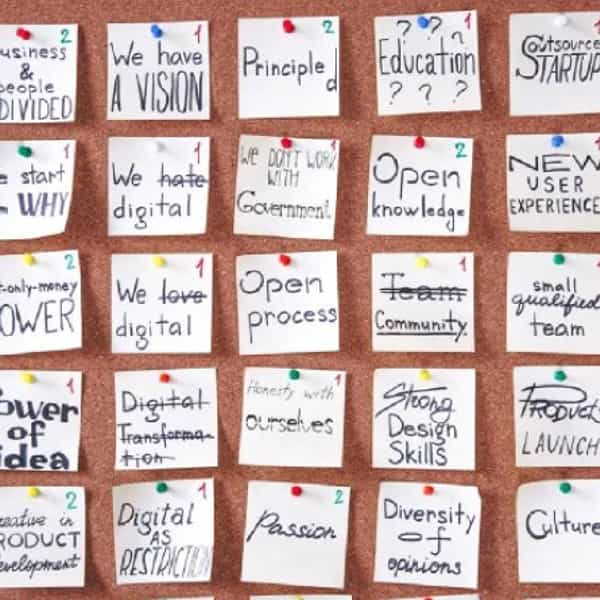 2
usiness
&
people
DIVIDED
1
We have
A VISION
2
Principled
1
? ? ?
Education
? ? ?
1
Outsource
STARTUP
1
e start
WHY
1
We hate
digital
1
We DON'T WORK
WITH
Government
2
Open
knowledge
NEW
USER
EXPERIENCE
2
t-only-money
OWER
1
We love
digital
Open
process
1
Team
Community
small
qualified
team
1
ower
of
idea
Digital
Transforma-
tion
1
Honesty with
ourselves
Strong
Design
Skills
Product
LAUNCH
2
reative in
PRODUCT
evelopment
1
Digital
AS
RESTRICTION
2
Passion
Diversity
of
opinions
Culture